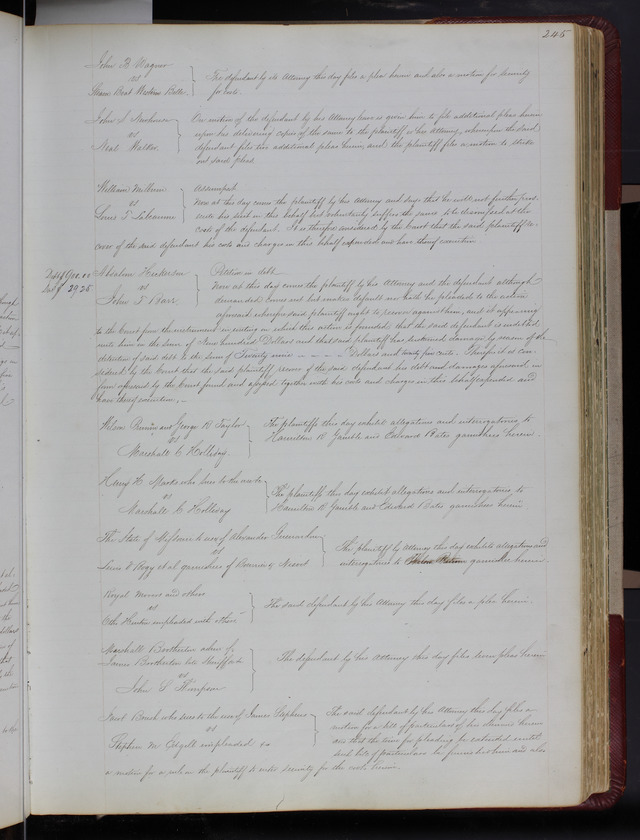 245
John B. Wagner
vs
Steam Boat Western Belle
The defendant by its Attorney this day files a plea herein and also a motion for security
for costs.
John S.
vs
Neal Walker.
On motion of the defendant by his Attorney leave is given him to file additional pleas herein
upon his delivering copies of the same to the plaintiff or his Attorney, whereupon the said
defendant files two additional pleas herein, and the plaintiff files a motion to strike
out said pleas.
William Milburn
vs
Louis T. Labeaume
Assumpsit
Now at this day comes the plaintiff by his Attorney and says that he will not further pros-
ecute his suit in this behalf but voluntarily suffers the same to be dismissed at the
costs of the defendant. It is therefore considered by the Court that the said plaintiff re-
cover of the said defendant his costs and charges in this behalf expended and have thereof execution
Debt $900.00
Dam's 29.25
Absalom Hickerson
vs
John T. Barr
Petition in debt
Now at this day comes the plaintiff by his Attorney and the defendant although
demanded comes not but makes default nor hath he pleaded to the action
aforesaid wherefore said plaintiff ought to recover against him, and it appearing
to the Court from the instrument in writing on which this action is founded, that the said defendant is indebted
unto him in the sum of Nine hundred Dollars and that said plaintiff has sustained damages by reason of the
detention of said debt to the sum of Twenty nine Dollars and twenty five cents. Therefore it is con-
sidered by the Court that the said plaintiff recover of the said defendant his debt and damages aforesaid in
form aforesaid by the Court found and assessed together with his costs and charges in this behalf expended and
have thereof execution.
Wilson and George R Taylor
vs
Marshall C Holliday.
The plaintiffs this day exhibit allegations and interrogatories to
Hamilton R Gamble and Edward Bates garnishees herein.
Henry H. who sues to the use
vs
Marshall C Holliday
The plaintiff this day exhibit allegations and interrogatories to
Hamilton R Gamble and Edward Bates garnishees herein
The State of Missouri to use of Alexander
vs
Louis V Bogy et al garnishees of
The plaintiff by Attorney this day exhibits allegations and
interrogatories to garnishee herein.
Royal Morris and others
vs
Otho Hunter impleaded with others
The said defendant by his Attorney this day files a plea herein.
Marshall Brotherton admr of
James Brotherton late Sheriff etc
vs
John S Thompson
The defendant by his Attorney this day files pleas herein
Jacob Boush who sues to the use of James Stephens
vs
Stephen M Edgell impleaded &c
The said defendant by his Attorney this day files a
motion for a bill of particulars of his demand herein
and that the time for pleading be extended until
such bill of particulars be furnished him and also
a motion for a rule on the plaintiff to enter security for the costs herein.